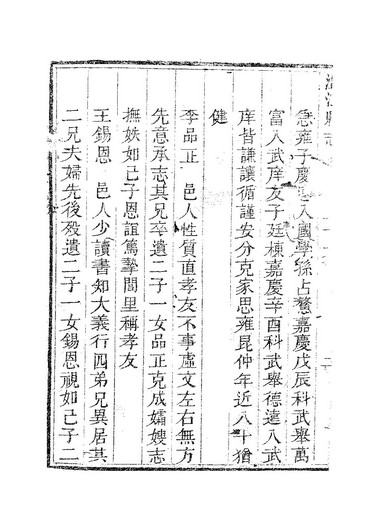 縣志
思雍子慶入國學孫占鰲嘉慶戊辰科武舉萬
富入武庠友子廷棟嘉慶辛酉科武舉德達入武
庠皆謙讓循謹安分克家思雍昆仲年近八十猶
健
李品正 邑人性質直孝友不事虛文左右無方
先意承志其兄卒遺二子一女品正克成孀嫂志
撫姪如己子恩誼篤摯閭里稱孝友
王錫恩 邑人少讀書知大義行四弟兄異居其
二兄夫婦先後歿遺二子一女錫恩視如己子二